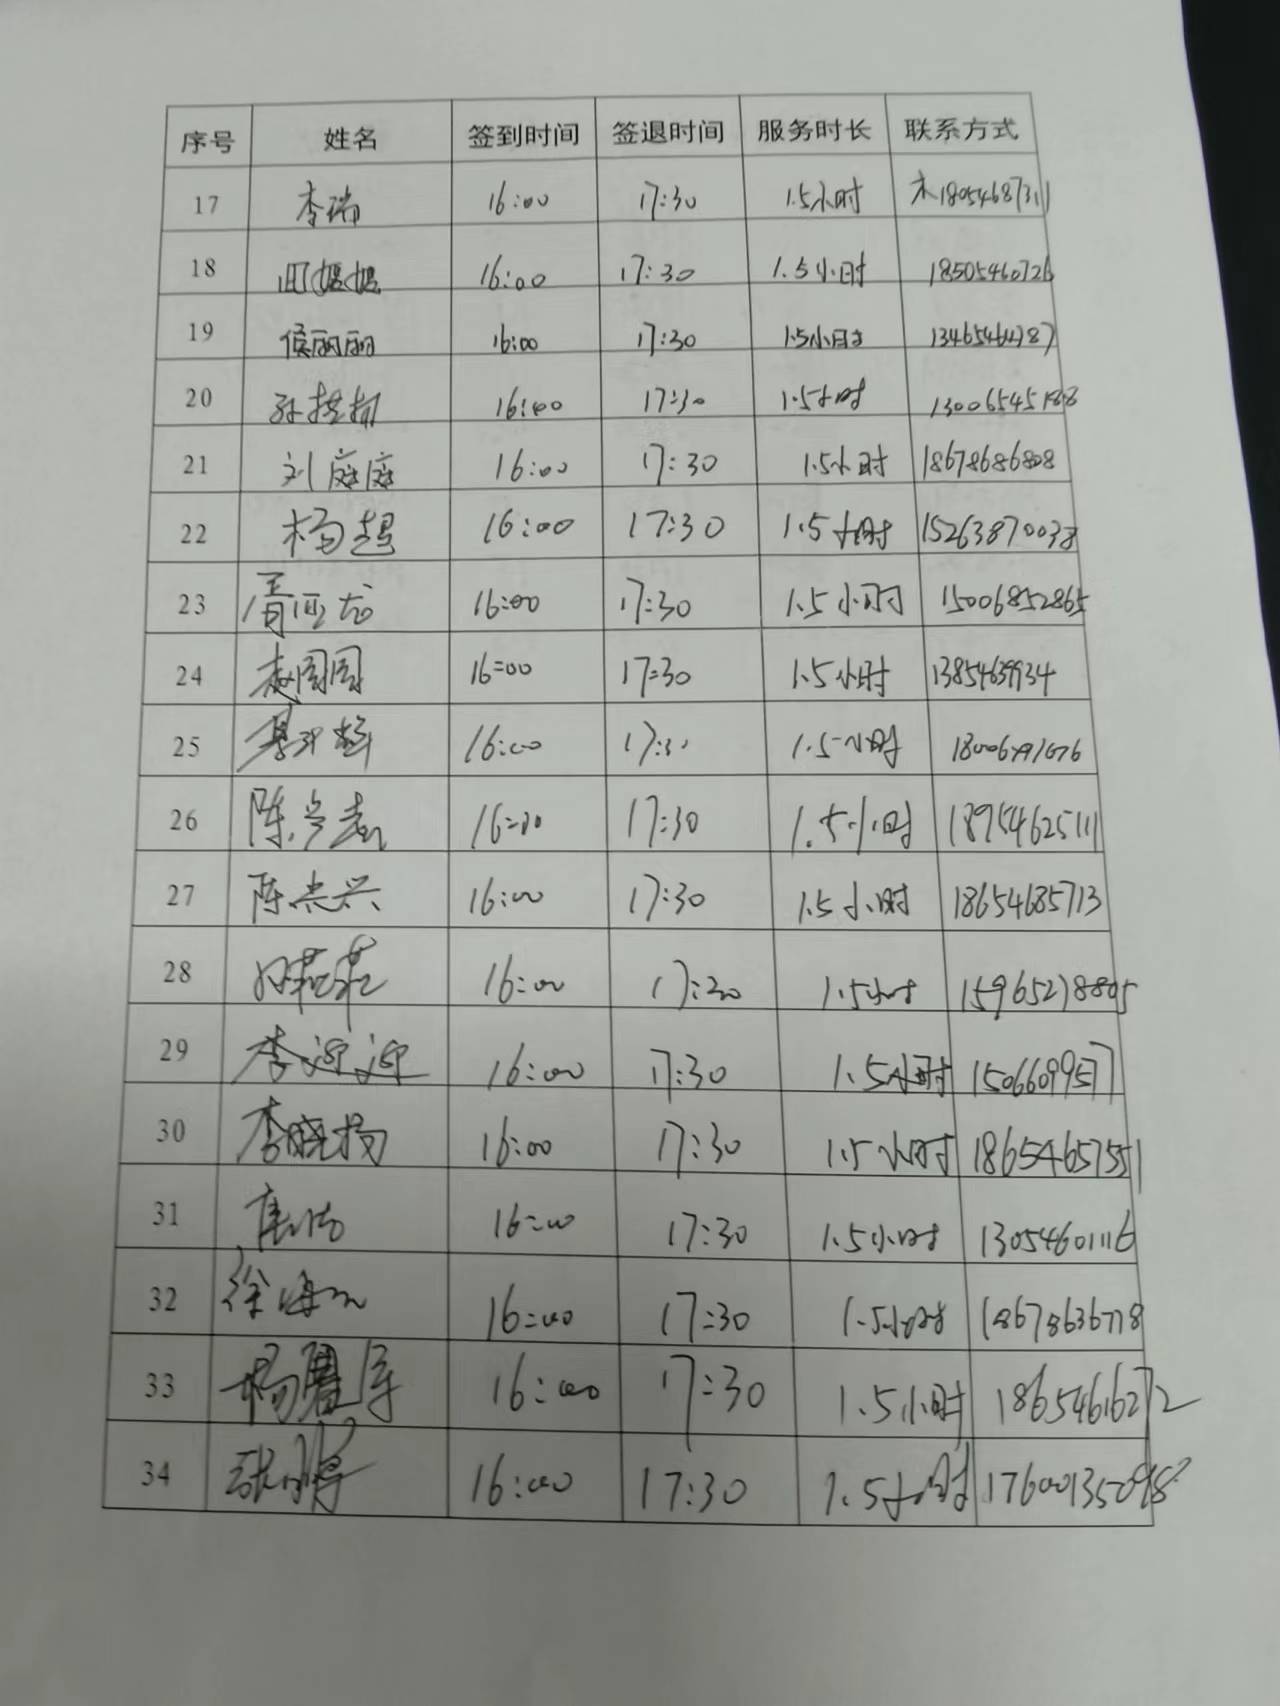 序号 姓名 签到时间 签退时间 服务时长 联系方式
17 李瑞 16:00 17:30 1.5小时 18054687311
18 16:00 17:30 1.5小时 18505460726
19 侯丽丽 16:00 17:30 1.5小时
20 16:00 17:30 1.5小时 13006545188
21 刘庭庭 16:00 17:30 1.5小时 18678686808
22 杨超 16:00 17:30 1.5小时 15263870038
23 胥亚龙 16:00 17:30 1.5小时 15006852865
24 赵园园 16:00 17:30 1.5小时
25 16:00 17:30 1.5小时
26 16:00 17:30 1.5小时 18954625111
27 16:00 17:30 1.5小时 18654685713
28 16:00 17:30 1.5小时 15965278805
29 李迎迎 16:00 17:30 1.5小时 15066099577
30 李晓杨 16:00 17:30 1.5小时 18654657551
31 16:00 17:30 1.5小时 13054601116
32 16:00 17:30 1.5小时 18678636778
33 16:00 17:30 1.5小时 18654616272
34 16:00 17:30 1.5小时